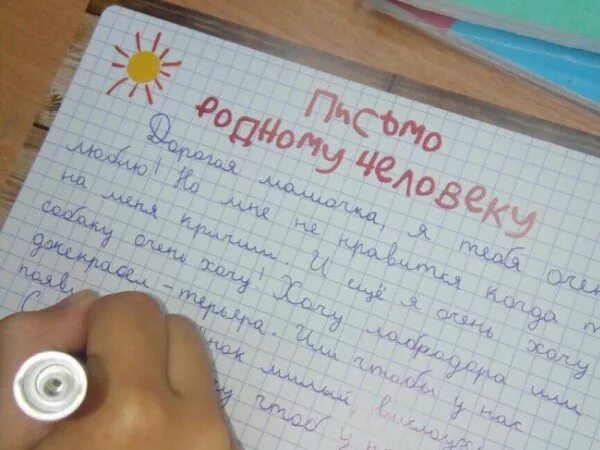 Письмо
родному человеку
Дорогая мамочка, я тебя очен
люблю! Но мне не нравится когда т
на меня кричиш. И ещё я очень хочу
собаку очень хочу! Хочу лабродора или
джекрасел-терьера. Или чтобы у нас
появи
милый, вислоух
чтоб у